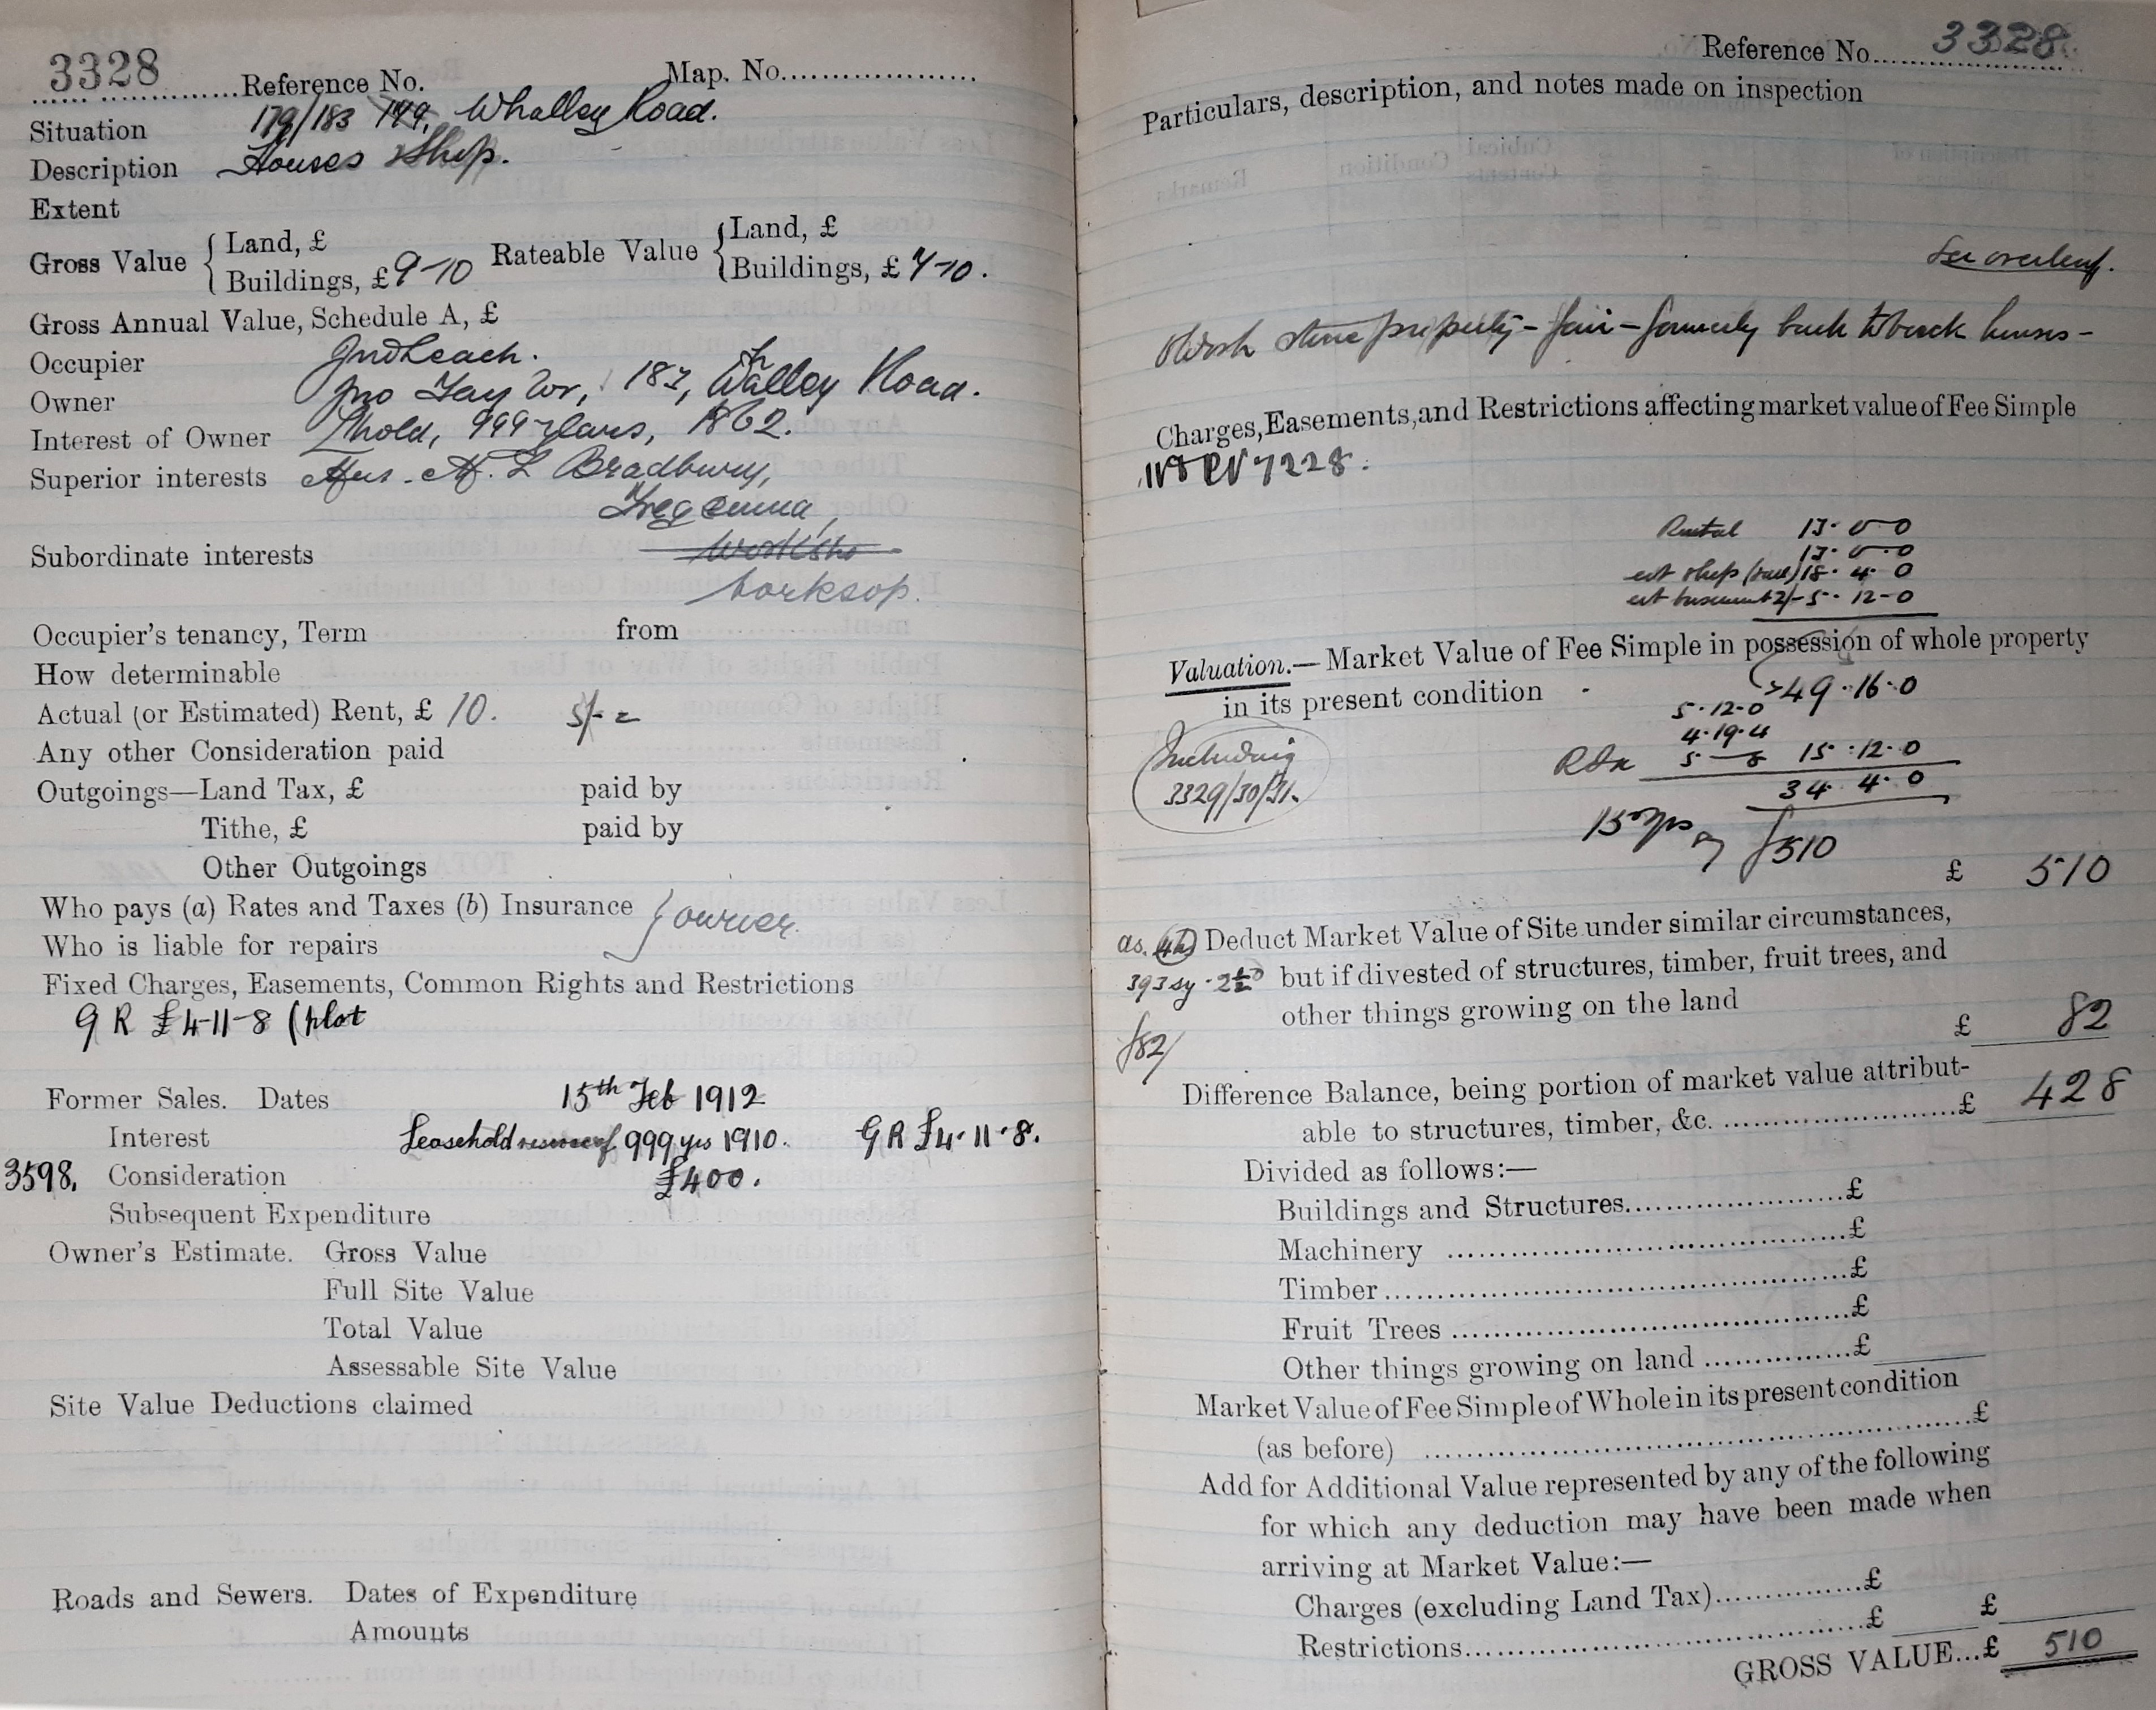 3328 Reference No. Map. No.
Situation 179/183 Whalley Road.
Description Houses & Shop.
Extent
Gross Value { Land, £
Buildings, £ 9-10
Rateable Value { Land, £
Buildings, £ 7-10.
Gross Annual Value, Schedule A, £
Occupier Jno Leach.
Owner Jno Taylor, 183, Whalley Road.
Interest of Owner L'hold, 999 years, 1862.
Superior interests Mrs. M. L Bradbury,
Tregenna,
Subordinate interests
Worksop.
Occupier's tenancy, Term from
How determinable
Actual (or Estimated) Rent, £ 10. 5/- =
Any other Consideration paid
Outgoings—Land Tax, £ paid by
Tithe, £ paid by
Other Outgoings
Who pays (a) Rates and Taxes (b) Insurance } owner
Who is liable for repairs
Fixed Charges, Easements, Common Rights and Restrictions
G R £4-11-8 (plot
Former Sales. Dates 15th Feb 1912
Interest Leasehold 999 yrs 1910. G R £4.11.8.
3598. Consideration £400.
Subsequent Expenditure
Owner's Estimate. Gross Value
Full Site Value
Total Value
Assessable Site Value
Site Value Deductions claimed
Roads and Sewers. Dates of Expenditure
Amounts
Reference No. 3328
Particulars, description, and notes made on inspection
See overleaf.
Oldish stone property - fair - formerly back to back houses -
Charges, Easements, and Restrictions affecting market value of Fee Simple
7228.
Rental 13.0.0
13.0.0
est shop 18.4.0
est basement 2/- 5.12-0
Valuation.—Market Value of Fee Simple in possession of whole property
in its present condition 49.16.0
5.12.0
4.19.4
15.12.0
34.4.0
Including
3329/30/31.
15 yps £510
£ 510
as. Deduct Market Value of Site under similar circumstances,
393 sy. but if divested of structures, timber, fruit trees, and
other things growing on the land
£82/ £ 82
Difference Balance, being portion of market value attribut-
able to structures, timber, &c. £ 428
Divided as follows:—
Buildings and Structures £
Machinery £
Timber £
Fruit Trees £
Other things growing on land £
Market Value of Fee Simple of Whole in its present condition
(as before) £
Add for Additional Value represented by any of the following
for which any deduction may have been made when
arriving at Market Value:—
Charges (excluding Land Tax) £
Restrictions £ £
GROSS VALUE...£ 510